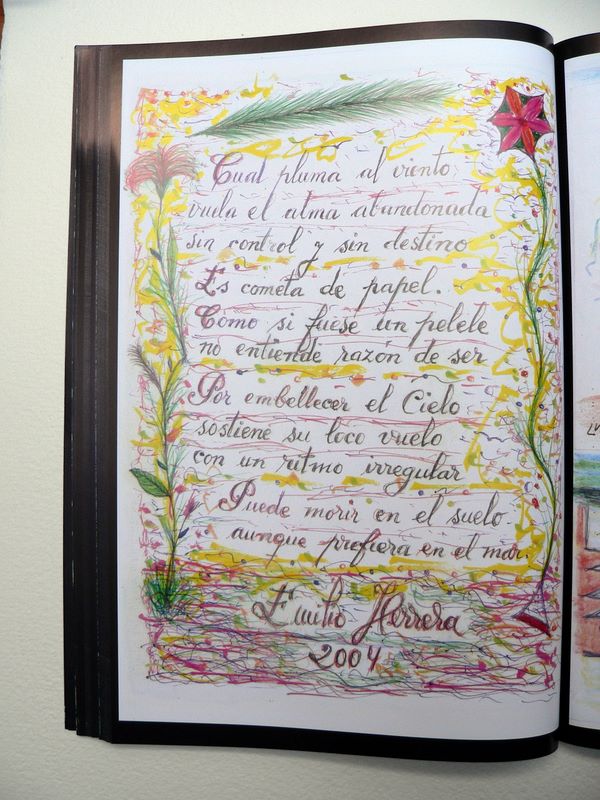 Cual pluma al viento
vuela el alma abandonada
sin control y sin destino
Es cometa de papel.
Como si fuese un pelele
no entiende razón de ser
Por embellecer el Cielo
sostiene su loco vuelo
con un ritmo irregular
Puede morir en el suelo
aunque profiera en el mar.
Emilio Herrera
2004